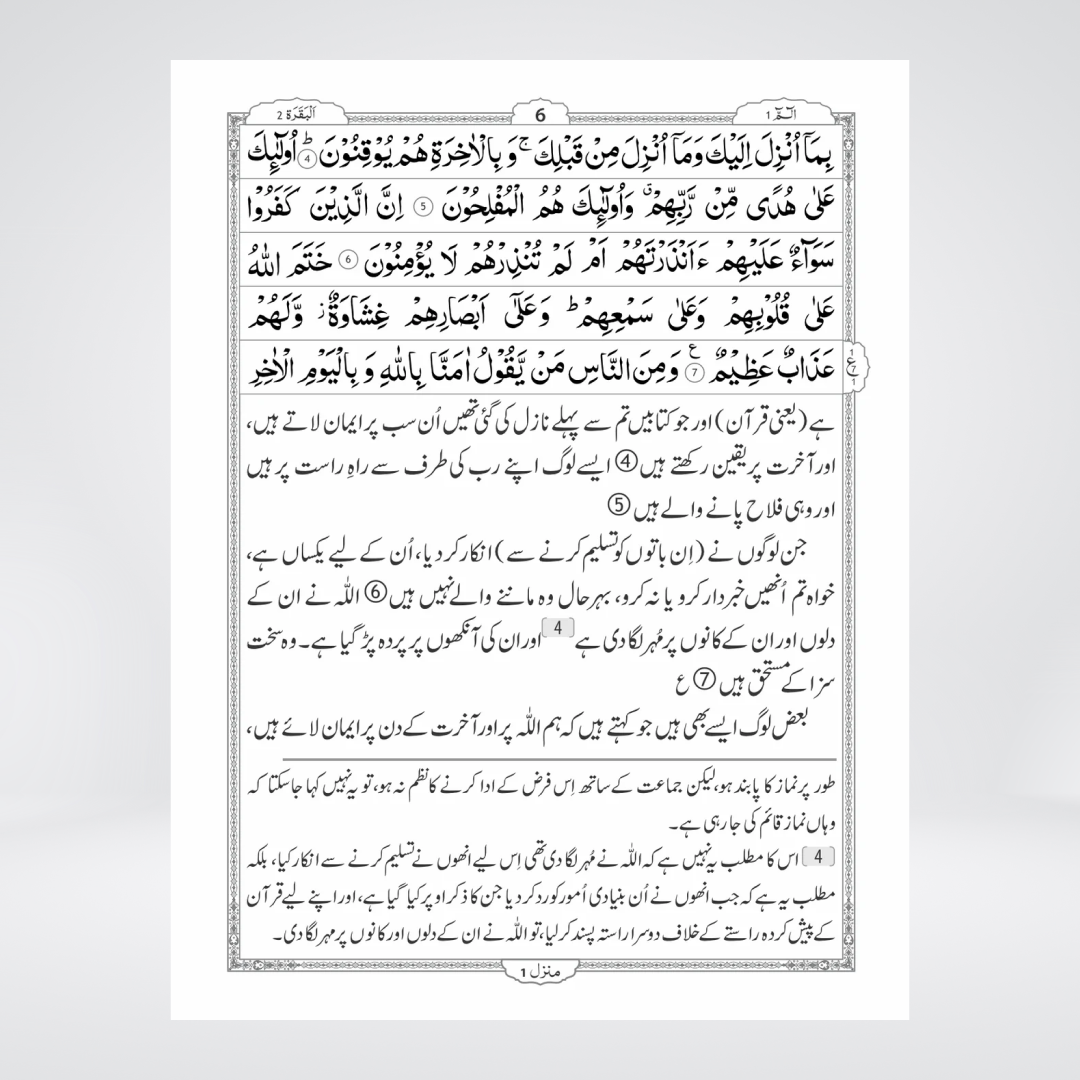 الٓـمّٓ 1
6
اَلْبَقَرَة 2
بِمَاۤ اُنْزِلَ اِلَيْكَ وَمَاۤ اُنْزِلَ مِنْ قَبْلِكَ ۚ وَ بِالْاٰخِرَةِ هُمْ يُوْقِنُوْنَ ؕ ④ اُولٰٓئِكَ
عَلٰى هُدًى مِّنْ رَّبِّهِمْ ۗ وَاُولٰٓئِكَ هُمُ الْمُفْلِحُوْنَ ⑤ اِنَّ الَّذِيْنَ كَفَرُوْا
سَوَآءٌ عَلَيْهِمْ ءَاَنْذَرْتَهُمْ اَمْ لَمْ تُنْذِرْهُمْ لَا يُؤْمِنُوْنَ ⑥ خَتَمَ اللّٰهُ
عَلٰى قُلُوْبِهِمْ وَعَلٰى سَمْعِهِمْ ؕ وَعَلٰٓى اَبْصَارِهِمْ غِشَاوَةٌ ز وَّلَهُمْ
عَذَابٌ عَظِيْمٌ ⑦ ع وَمِنَ النَّاسِ مَنْ يَّقُوْلُ اٰمَنَّا بِاللّٰهِ وَ بِالْيَوْمِ الْاٰخِرِ
1 ع 7 1
ہے (یعنی قرآن) اور جو کتابیں تم سے پہلے نازل کی گئی تھیں اُن سب پر ایمان لاتے ہیں،
اور آخرت پر یقین رکھتے ہیں ④ ایسے لوگ اپنے رب کی طرف سے راہِ راست پر ہیں
اور وہی فلاح پانے والے ہیں ⑤
جن لوگوں نے (اِن باتوں کو تسلیم کرنے سے) انکار کر دیا، اُن کے لیے یکساں ہے،
خواہ تم اُنھیں خبردار کرو یا نہ کرو، بہرحال وہ ماننے والے نہیں ہیں ⑥ اللہ نے ان کے
دلوں اور ان کے کانوں پر مُہر لگا دی ہے 4 اور ان کی آنکھوں پر پردہ پڑ گیا ہے۔ وہ سخت
سزا کے مستحق ہیں ⑦ ع
بعض لوگ ایسے بھی ہیں جو کہتے ہیں کہ ہم اللہ پر اور آخرت کے دن پر ایمان لائے ہیں،
طور پر نماز کا پابند ہو، لیکن جماعت کے ساتھ اِس فرض کے ادا کرنے کا نظم نہ ہو، تو یہ نہیں کہا جا سکتا کہ
وہاں نماز قائم کی جا رہی ہے۔
4 اس کا مطلب یہ نہیں ہے کہ اللہ نے مُہر لگا دی تھی اِس لیے انھوں نے تسلیم کرنے سے انکار کیا، بلکہ
مطلب یہ ہے کہ جب انھوں نے اُن بنیادی اُمور کو رد کر دیا جن کا ذکر اوپر کیا گیا ہے، اور اپنے لیے قرآن
کے پیش کردہ راستے کے خلاف دوسرا راستہ پسند کر لیا، تو اللہ نے ان کے دلوں اور کانوں پر مہر لگا دی۔
منزل 1